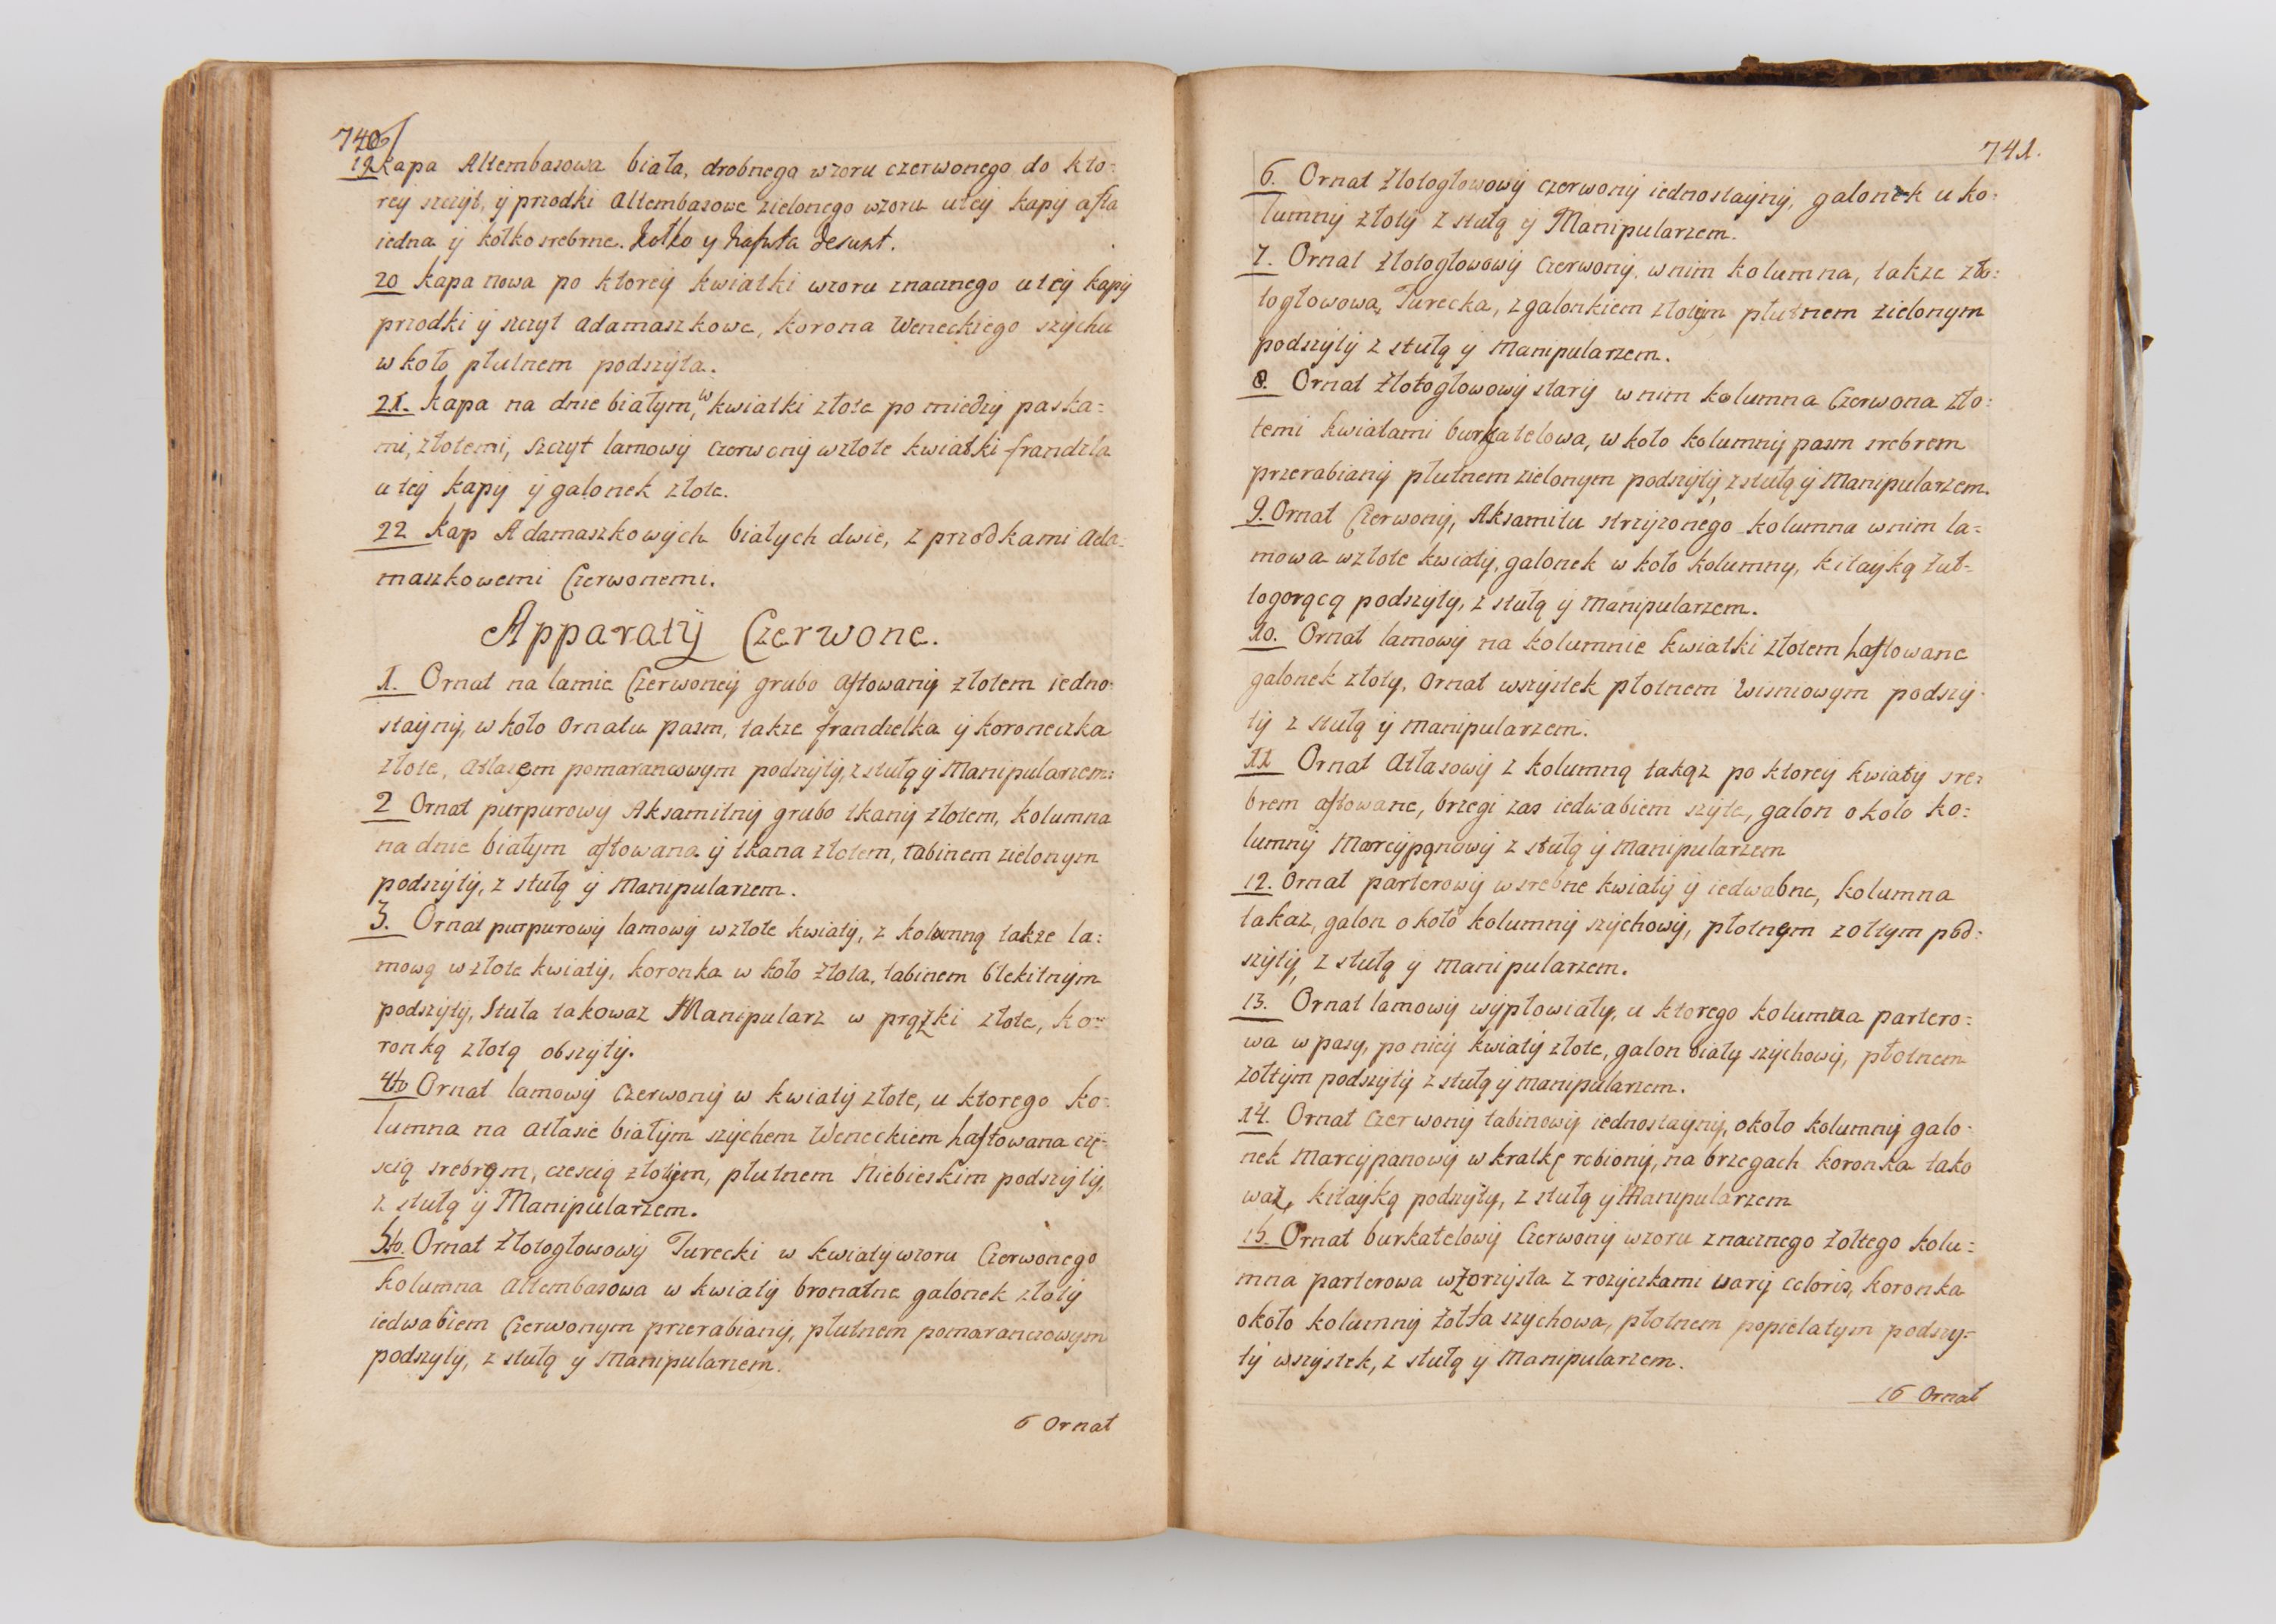 740
19 Kapa Altembasowa biała, drobnego wzoru czerwonego do kto=
rey szczyt, y przodki Altembasowe zielonego wzoru u tey kapy afta
iedna y kołko srebrne. Kołko y hafwta desunt.
20 Kapa nowa po ktorey kwiatki wzoru znacznego u tey kapy
przodki y szczyt adamaszkowe, korona Weneckiego szychu
w koło płutnem podszyta.
21. Kapa na dnie białym, w kwiatki złote po miedzy paska=
mi, złotemi, szczyt lamowy czerwony w złote kwiatki frandzla
u tey kapy y galonek złote.
22 Kap Adamaszkowych białych dwie, z przodkami Ada=
maszkowemi Czerwonemi.
Apparaty Czerwone.
1. Ornat na lamie Czerwoney grubo aftowany złotem iedno=
stayny, w koło Ornatu pasm, takze frandzelka y koroneczka
złote, Atłasem pomaranczowym podszyty, z stułą y Manipularzem:
2 Ornat purpurowy Aksamitny grubo tkany złotem, kolumna
na dnie białym aftowana y tkana złotem, tabinem zielonym
podszyty, z stułą y Manipularzem.
3. Ornat purpurowy lamowy w złote kwiaty, z kolumną takze la=
mową w złote kwiaty, koronka w koło złota, tabinem błekitnym
podszyty, Stuła takowaz Manipularz w prążki złote, ko=
ronką złotą obszyty.
4to Ornat lamowy Czerwony w kwiaty złote, u ktorego ko=
lumna na Atłasie białym szychem Weneckiem haftowana czę=
scią srebrym, czescią złotym, płutnem Niebieskim podszyty,
z stułą y Manipularzem.
5to. Ornat Złotogłowowy Turecki w kwiaty wzoru Czerwonego
Kolumna Altembasowa w kwiaty bronatne galonek złoty
iedwabiem Czerwonym przerabiany, płutnem pomaranczowym
podszyty, z stułą y Manipularzem.
6 Ornat
741.
6. Ornat Złotogłowowy czerwony iednostayny, galonek u ko=
lumny złoty z stułą y Manipularzem.
7. Ornat złotogłowowy Czerwony, w nim kolumna, takze zło=
togłowowa, Turecka, z galonkiem złotym płutnem zielonym
podszyty z stułą y Manipularzem.
8. Ornat Złotogłowowy stary w nim kolumna Czerwona zło=
temi kwiatami burkatelowa, w koło kolumny pasm srebrem
przerabiany płutnem zielonym podszyty, z stułą y Manipularzem.
9. Ornat Czerwony, Aksamitu strzyzonego kolumna w nim la=
mowa w złote kwiaty, galonek w koło kolumny, kitayką żuł=
togorącą podszyty, z stułą y Manipularzem.
10. Ornat lamowy na kolumnie kwiatki złotem haftowane
galonek złoty, Ornat wszystek płotnem Wisniowym podszy=
ty z stułą y manipularzem.
11 Ornat Atłasowy z kolumną takąz po ktorey kwiaty sre=
brem aftowane, brzegi zas iedwabiem szyte, galon około ko=
lumny Marcypąnowy z stułą y Manipularzem
12. Ornat parterowy w srebne kwiaty y iedwabne, kolumna
takaz, galon około kolumny szychowy, płotnym zołtym pod=
szyty, z stułą y manipularzem.
13. Ornat lamowy wypłowiały, u ktorego kolumna partero=
wa w pasy, po niey kwiaty złote, galon biały szychowy, płotnem
zołtym podszyty z stułą y manipularzem.
14. Ornat Czerwony tabinowy iednostayny, około kolumny galo=
nek Marcypanowy w kratkę robiony, na brzegach koronka tako
waż, kitayką podszyty, z stułą y Manipularzem
15. Ornat burkatelowy Czerwony wzoru znacznego żołtego kolu=
mna parterowa wzorzysta z rozyczkami varij coloris, koronka
około kolumny żołta szychowa, płotnem popielatym podszy=
ty wszystek, z stułą y Manipularzem.
16 Ornat